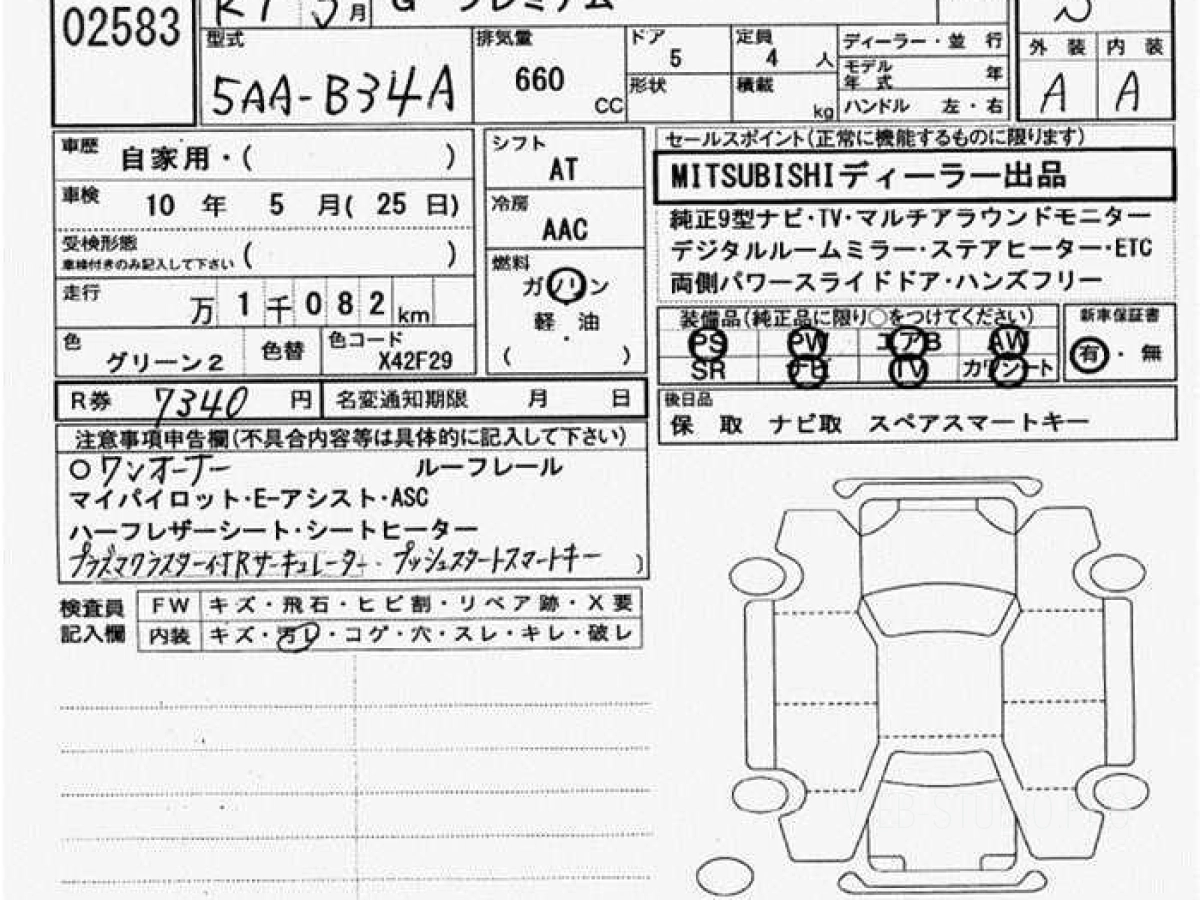 02583
R7 5月 G プレミアム
型式 5AA-B34A
排気量 660 CC
ドア 5
形状
定員 4 人
積載 kg
ディーラー・並 行
モデル年式 年
ハンドル 左・右
外装 内装
A A
車歴 自家用・( )
車検 10 年 5 月( 25 日)
受検形態 ( )
車検付きのみ記入して下さい
走行 万 1 千 0 8 2 km
色 グリーン2 色替 色コード X42F29
シフト AT
冷房 AAC
燃料 ガソリン
軽・油
( )
R券 7340 円 名変通知期限 月 日
セールスポイント(正常に機能するものに限ります)
MITSUBISHIディーラー出品
純正9型ナビ・TV・マルチアラウンドモニター
デジタルルームミラー・ステアヒーター・ETC
両側パワースライドドア・ハンズフリー
装備品(純正品に限り○をつけてください) 新車保証書
PS PW エアB AW 有・無
SR ナビ TV カワシート
後日品
保 取 ナビ取 スペアスマートキー
注意事項申告欄(不具合内容等は具体的に記入して下さい)
○ワンオーナー ルーフレール
マイパイロット・E-アシスト・ASC
ハーフレザーシート・シートヒーター
プラズマクラスターイオRサーキュレーター・プッシュスタートスマートキー )
検査員記入欄
FW キズ・飛石・ヒビ割・リペア跡・X要
内装 キズ・汚レ・コゲ・穴・スレ・キレ・破レ